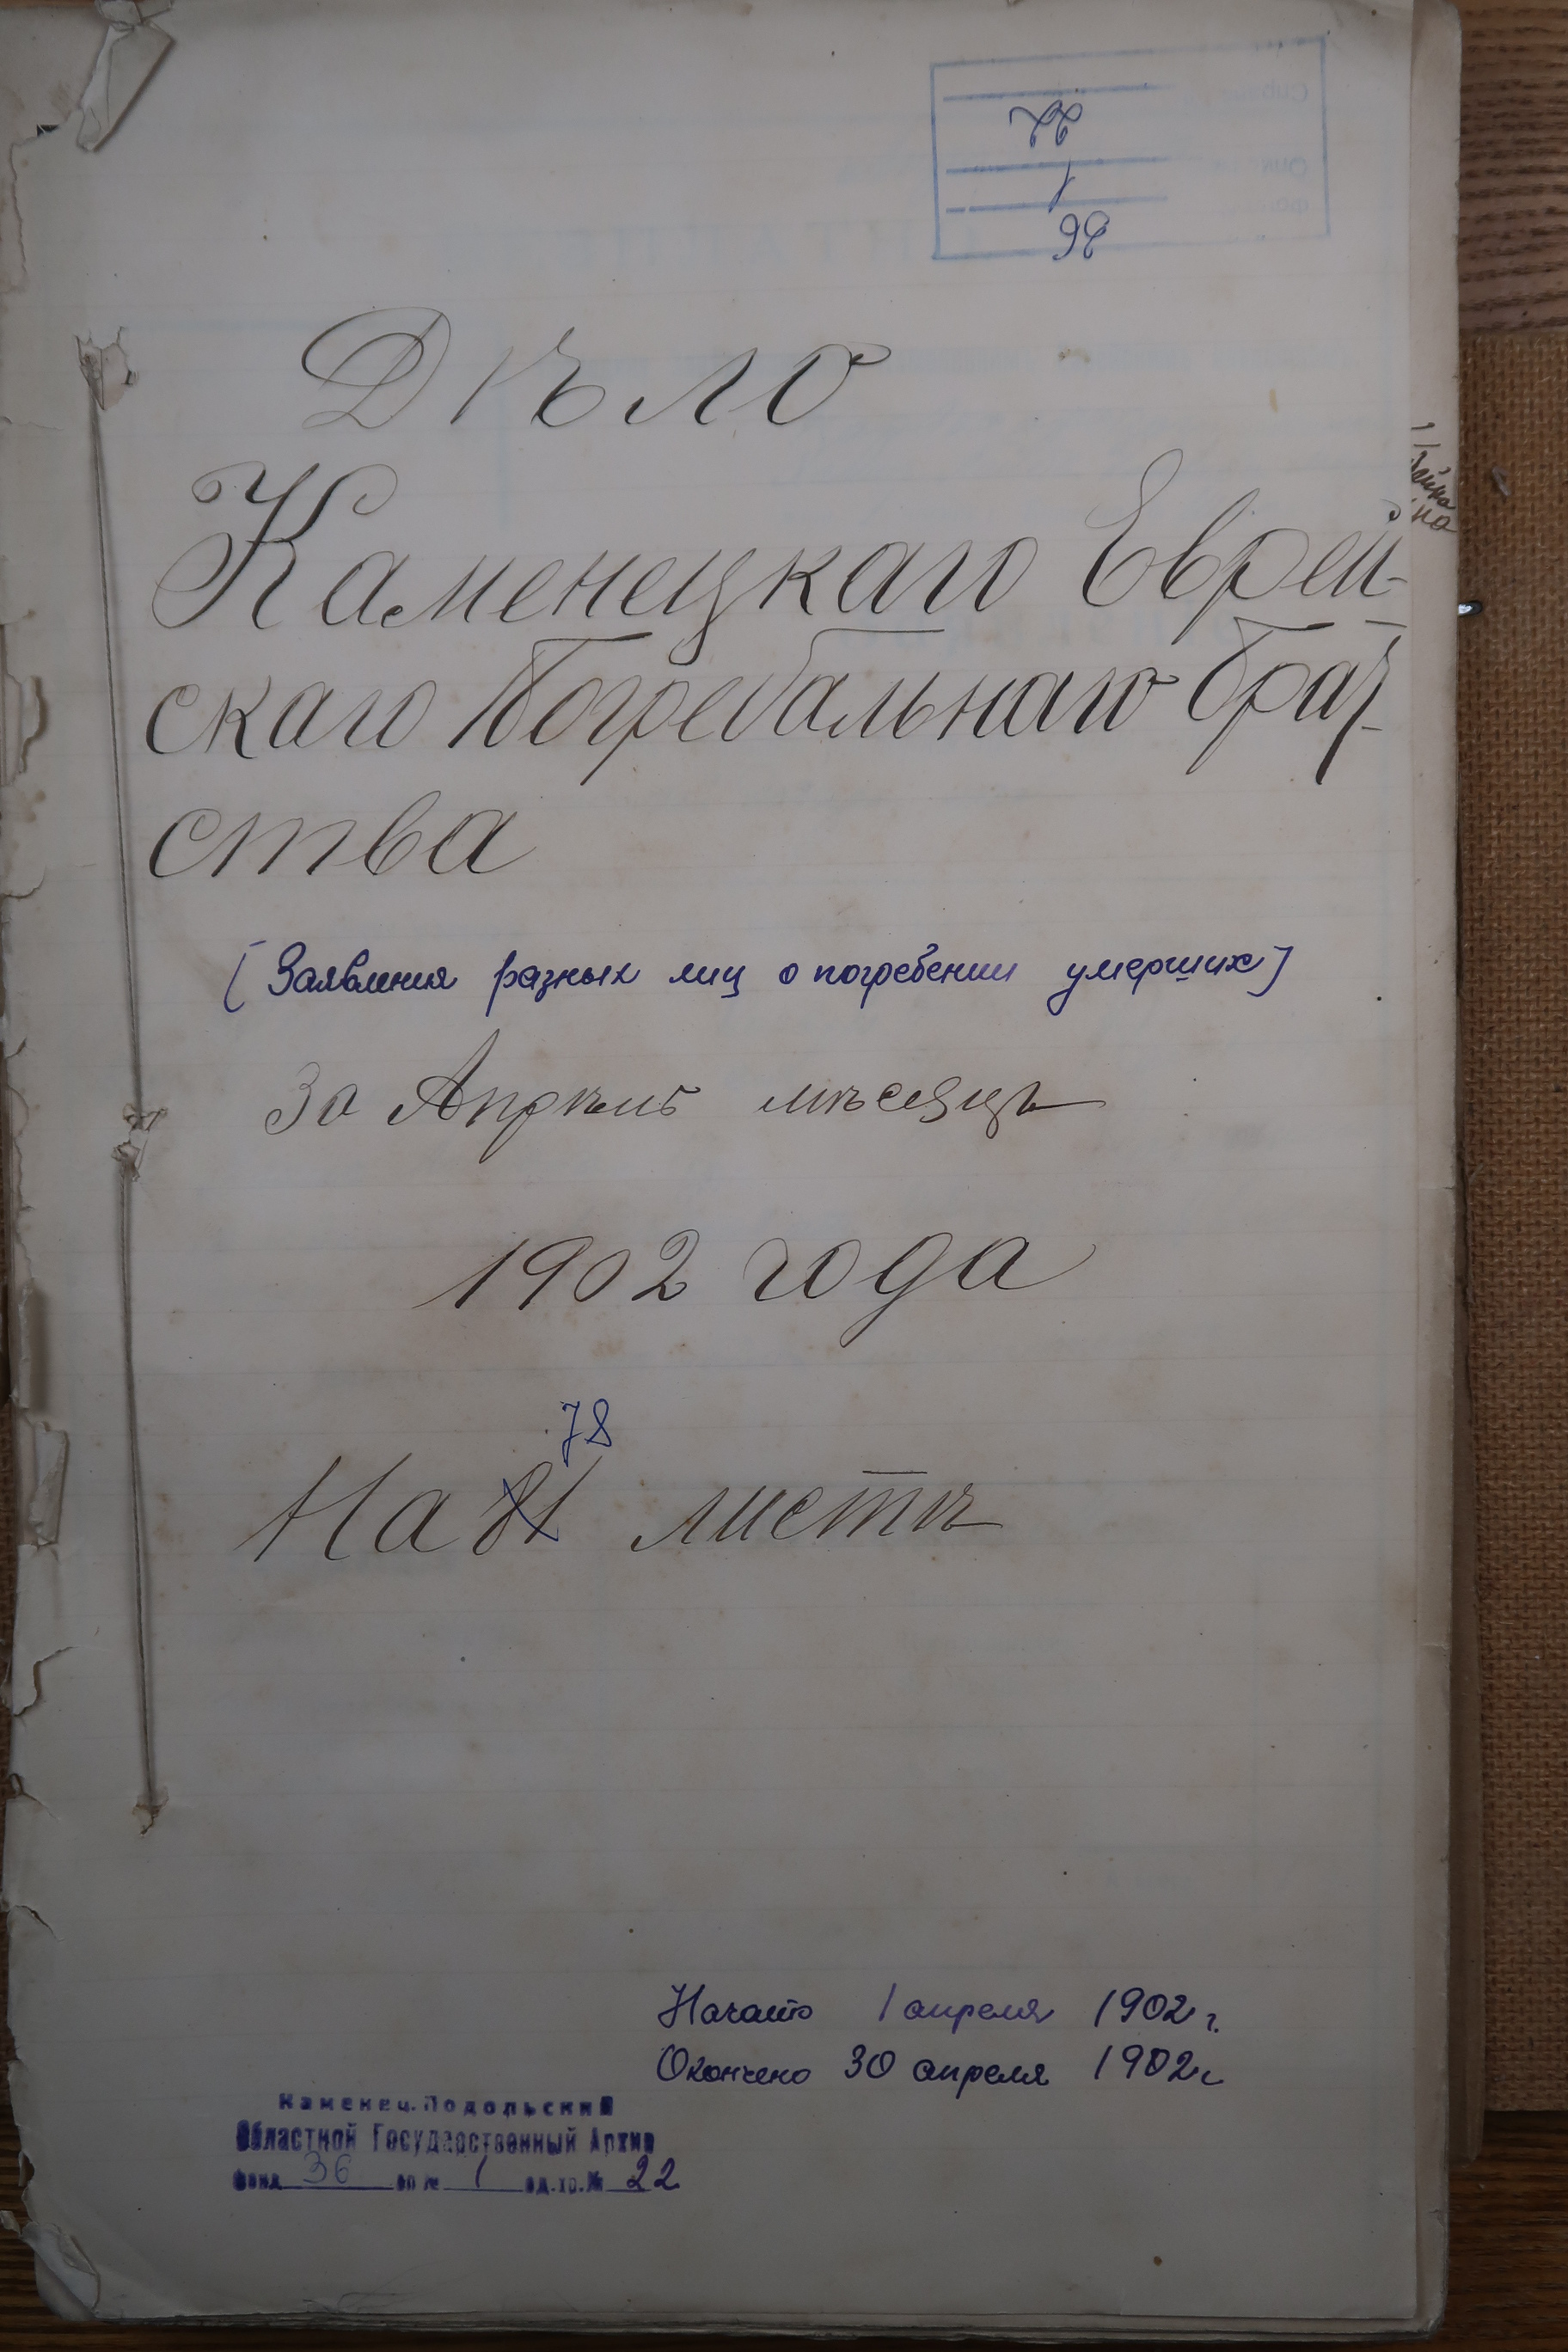 22
1
36
Дѣло
Каменецкаго Еврей-
скаго Погребальнаго Брат-
ства
(Заявления разных лиц о погребении умерших)
За Апрѣль мѣсяцъ
1902 года
78
На 81 листѣ
Начато 1 апреля 1902 г.
Окончено 30 апреля 1902 г
Каменец-Подольский
Областной Государственный Архив
Фонд 36 оп № 1 ед.хр.№ 22